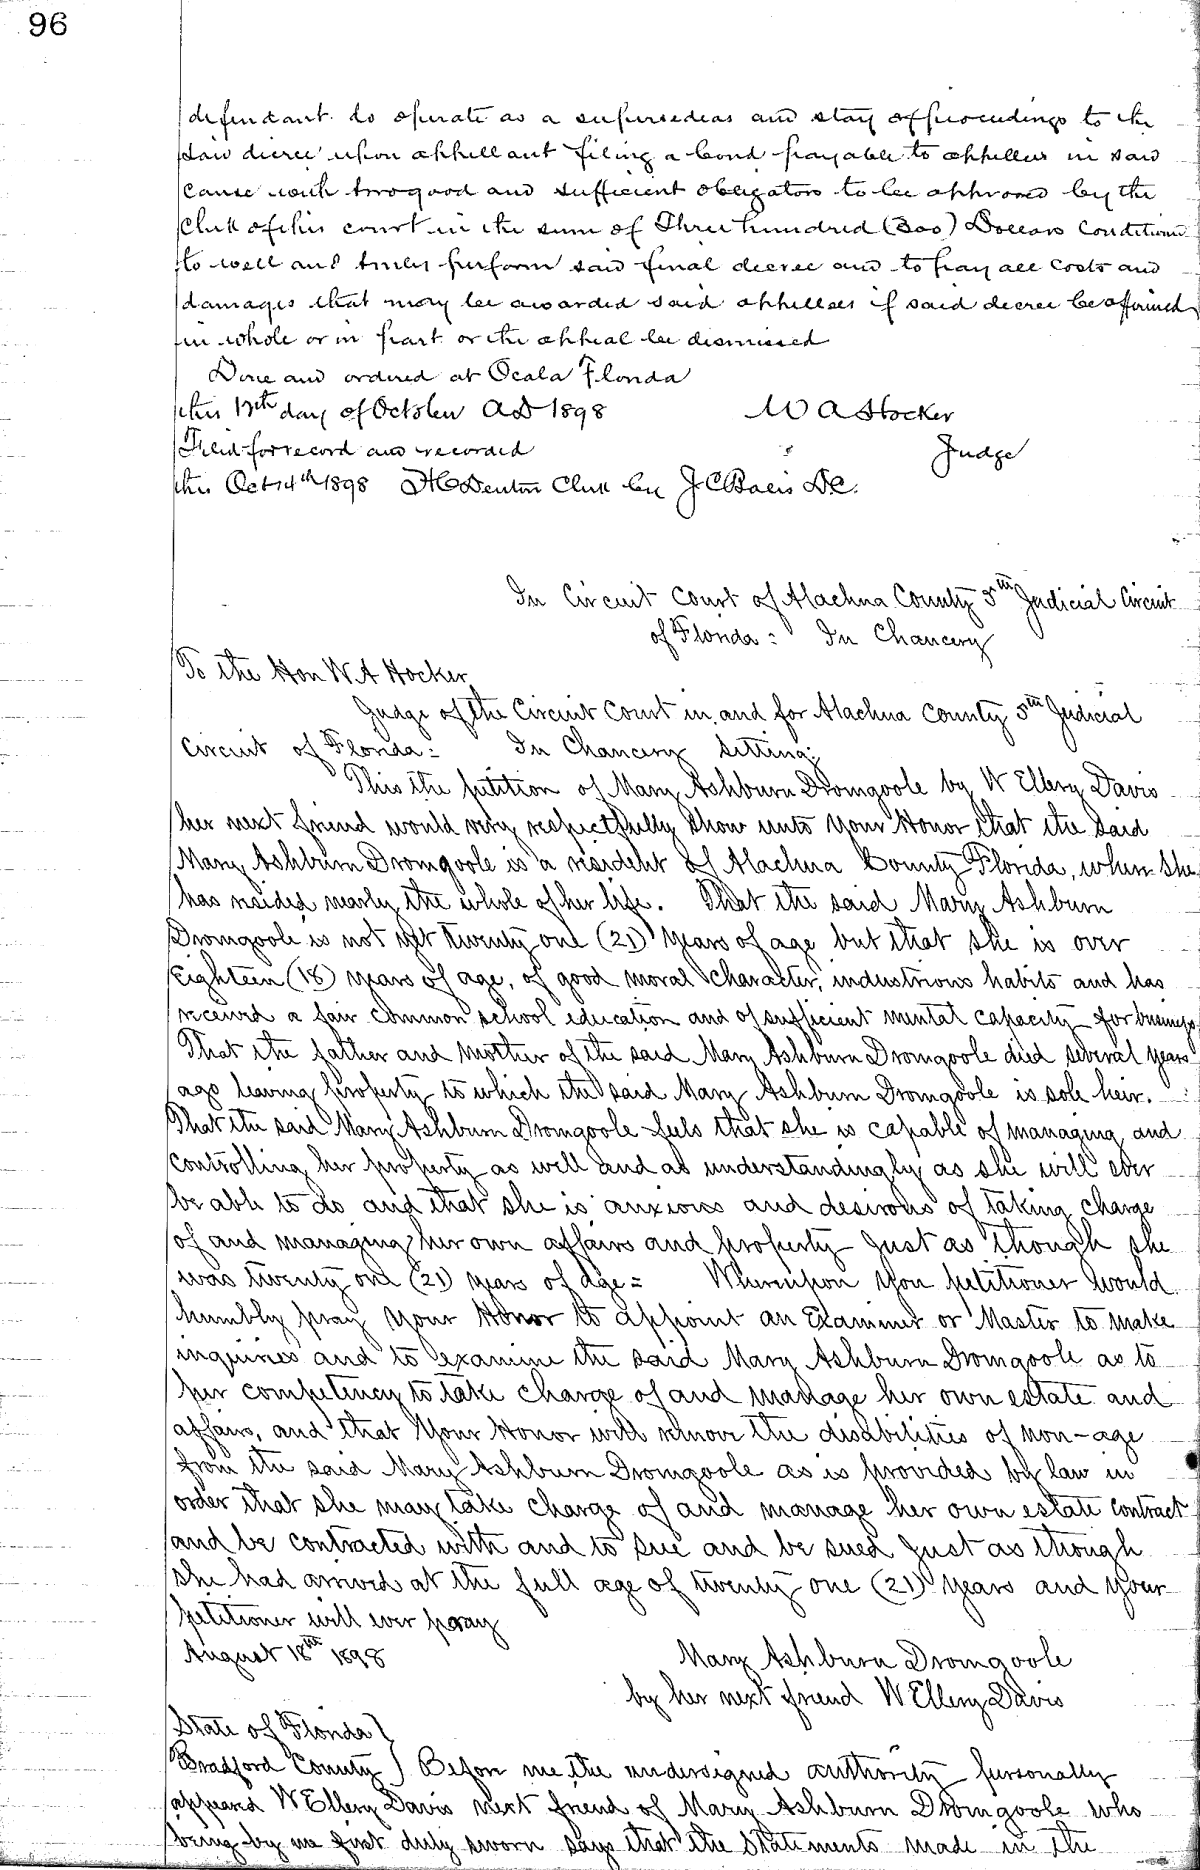 96
defendant to operate as a supersedeas and stay of proceedings to the
said decree upon appellant filing a bond payable to appellees in said
cause with two good and sufficient obligators to be approved by the
Clerk of this court in the sum of Three hundred (300) Dollars Conditioned
to well and truly perform said final decree and to pay all costs and
damages that may be awarded said appellees if said decree be affirmed
in whole or in part or the appeal be dismissed
Done and ordered at Ocala Florida
this 13th day of October AD 1898 W A Hocker
Filed for record and recorded Judge
this Oct 14th 1898 H C Denton Clerk by D.C.
In Circuit Court of Alachua County 5th Judicial Circuit
of Florida: In Chancery
To the Hon W. A Hocker
Judge of the Circuit Court in and for Alachua County 5th Judicial
Circuit of Florida: In Chancery Sitting:
This the petition of Mary Ashburn Dromgoole by W Ellery Davis
her next friend would very respectfully show unto Your Honor that the said
Mary Ashburn Dromgoole is a resident of Alachua County Florida, where she
has resided nearly the whole of her life. That the said Mary Ashburn
Dromgoole is not yet twenty one (21) years of age but that she is over
Eighteen (18) years of age, of good moral character, industrious habits and has
received a fair common school education and of sufficient mental capacity for business
That the father and mother of the said Mary Ashburn Dromgoole died several years
ago leaving property to which the said Mary Ashburn Dromgoole is sole heir.
That the said Mary Ashburn Dromgoole feels that she is capable of managing and
controlling her property as well and as understandingly as she will ever
be able to do and that she is anxious and desirous of taking charge
of and managing her own affairs and property just as though she
was twenty one (21) years of age = Whereupon you petitioner would
humbly pray Your Honor to appoint an Examiner or Master to make
inquiries and to examine the said Mary Ashburn Dromgoole as to
her competency to take charge of and manage her own estate and
affairs, and that Your Honor will remove the disabilities of non-age
from the said Mary Ashburn Dromgoole as is provided by law in
order that she may take charge of and manage her own estate contract
and be contracted with and to sue and be sued just as though
she had arrived at the full age of twenty one (21) years and your
petitioner will ever pray
August 18th 1898 Mary Ashburn Dromgoole
by her next friend W Ellery Davis
State of Florida }
Bradford County } Before me the undersigned authority personally
appeared W Ellery Davis next friend of Mary Ashburn Dromgoole who
being by me first duly sworn says that the statements made in the